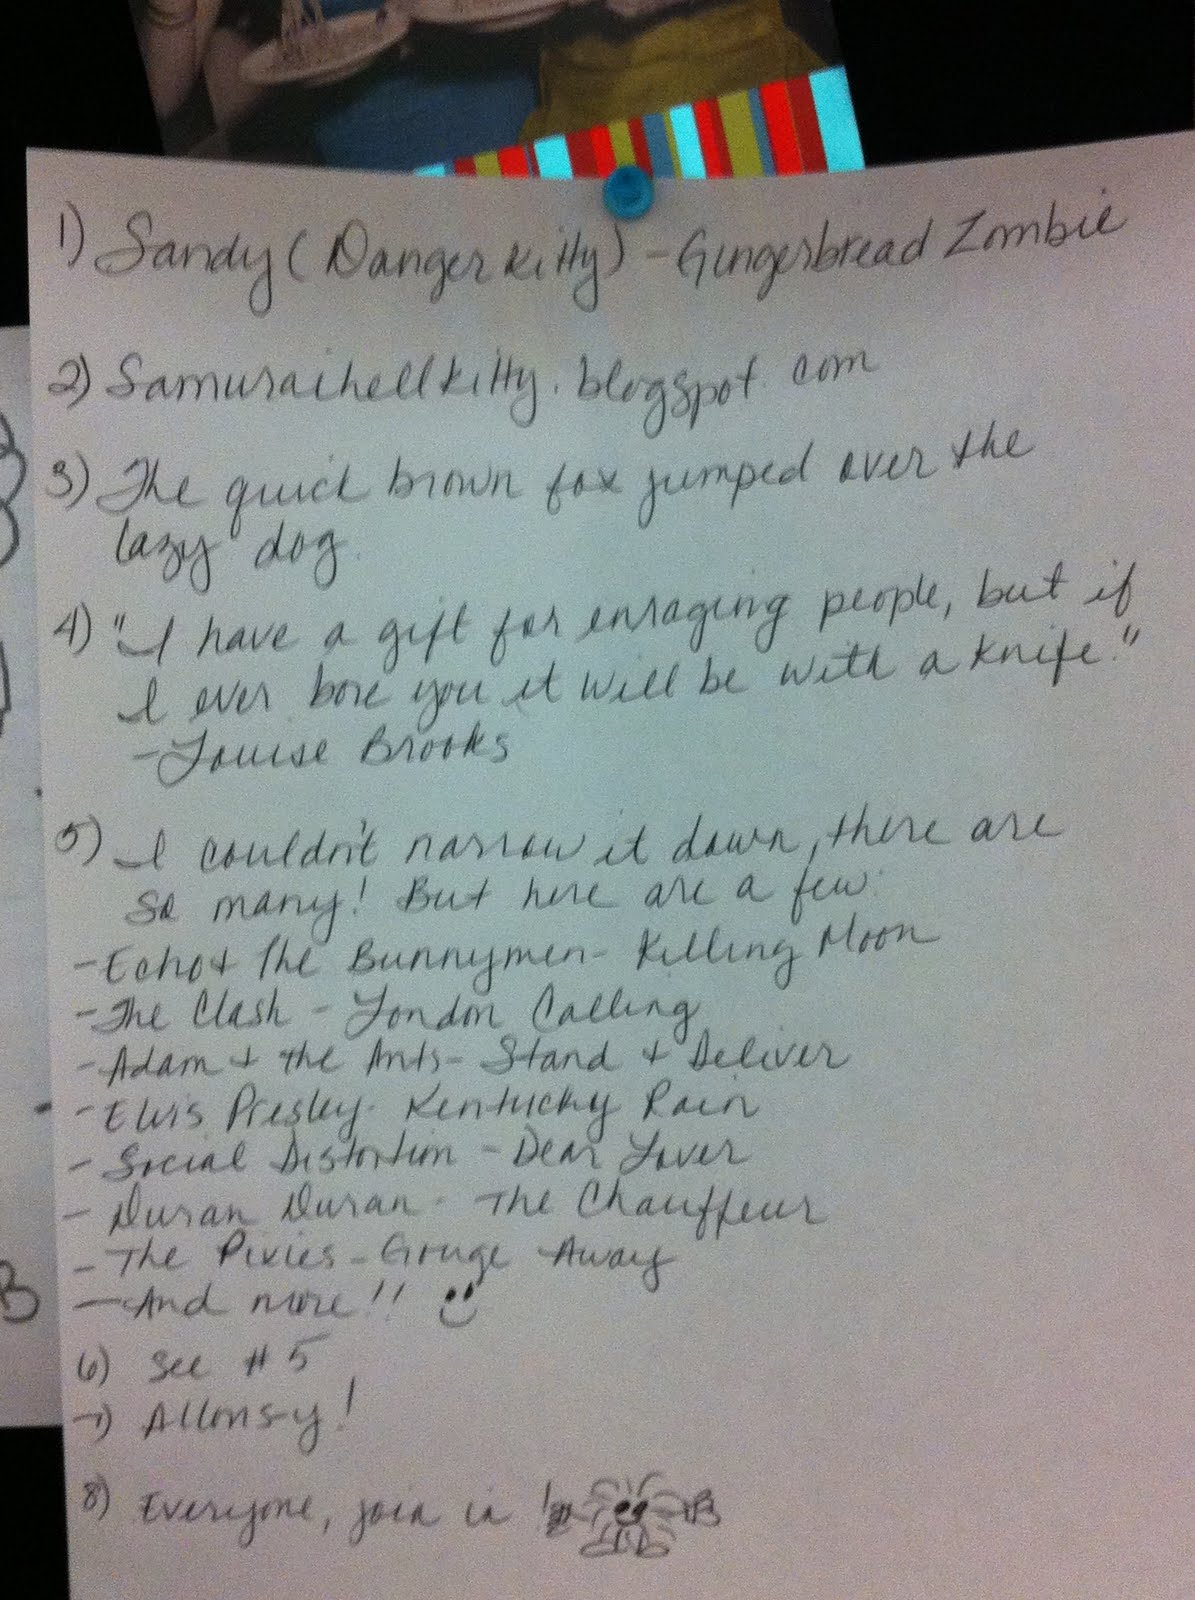 1) Sandy (Danger Kitty) - Gingerbread Zombie
2) Samuraihellkitty.blogspot.com
3) The quick brown fox jumped over the
lazy dog.
4) "I have a gift for enraging people, but if
I ever bore you it will be with a knife."
- Louise Brooks
5) I couldn't narrow it down, there are
so many! But here are a few:
- Echo + The Bunnymen - Killing Moon
- The Clash - London Calling
- Adam + the Ants - Stand + Deliver
- Elvis Presley - Kentucky Rain
- Social Distortion - Dear Lover
- Duran Duran - The Chauffeur
- The Pixies - Gouge Away
- And more!!
6) See #5
7) Allons-y!
8) Everyone, join in!
B